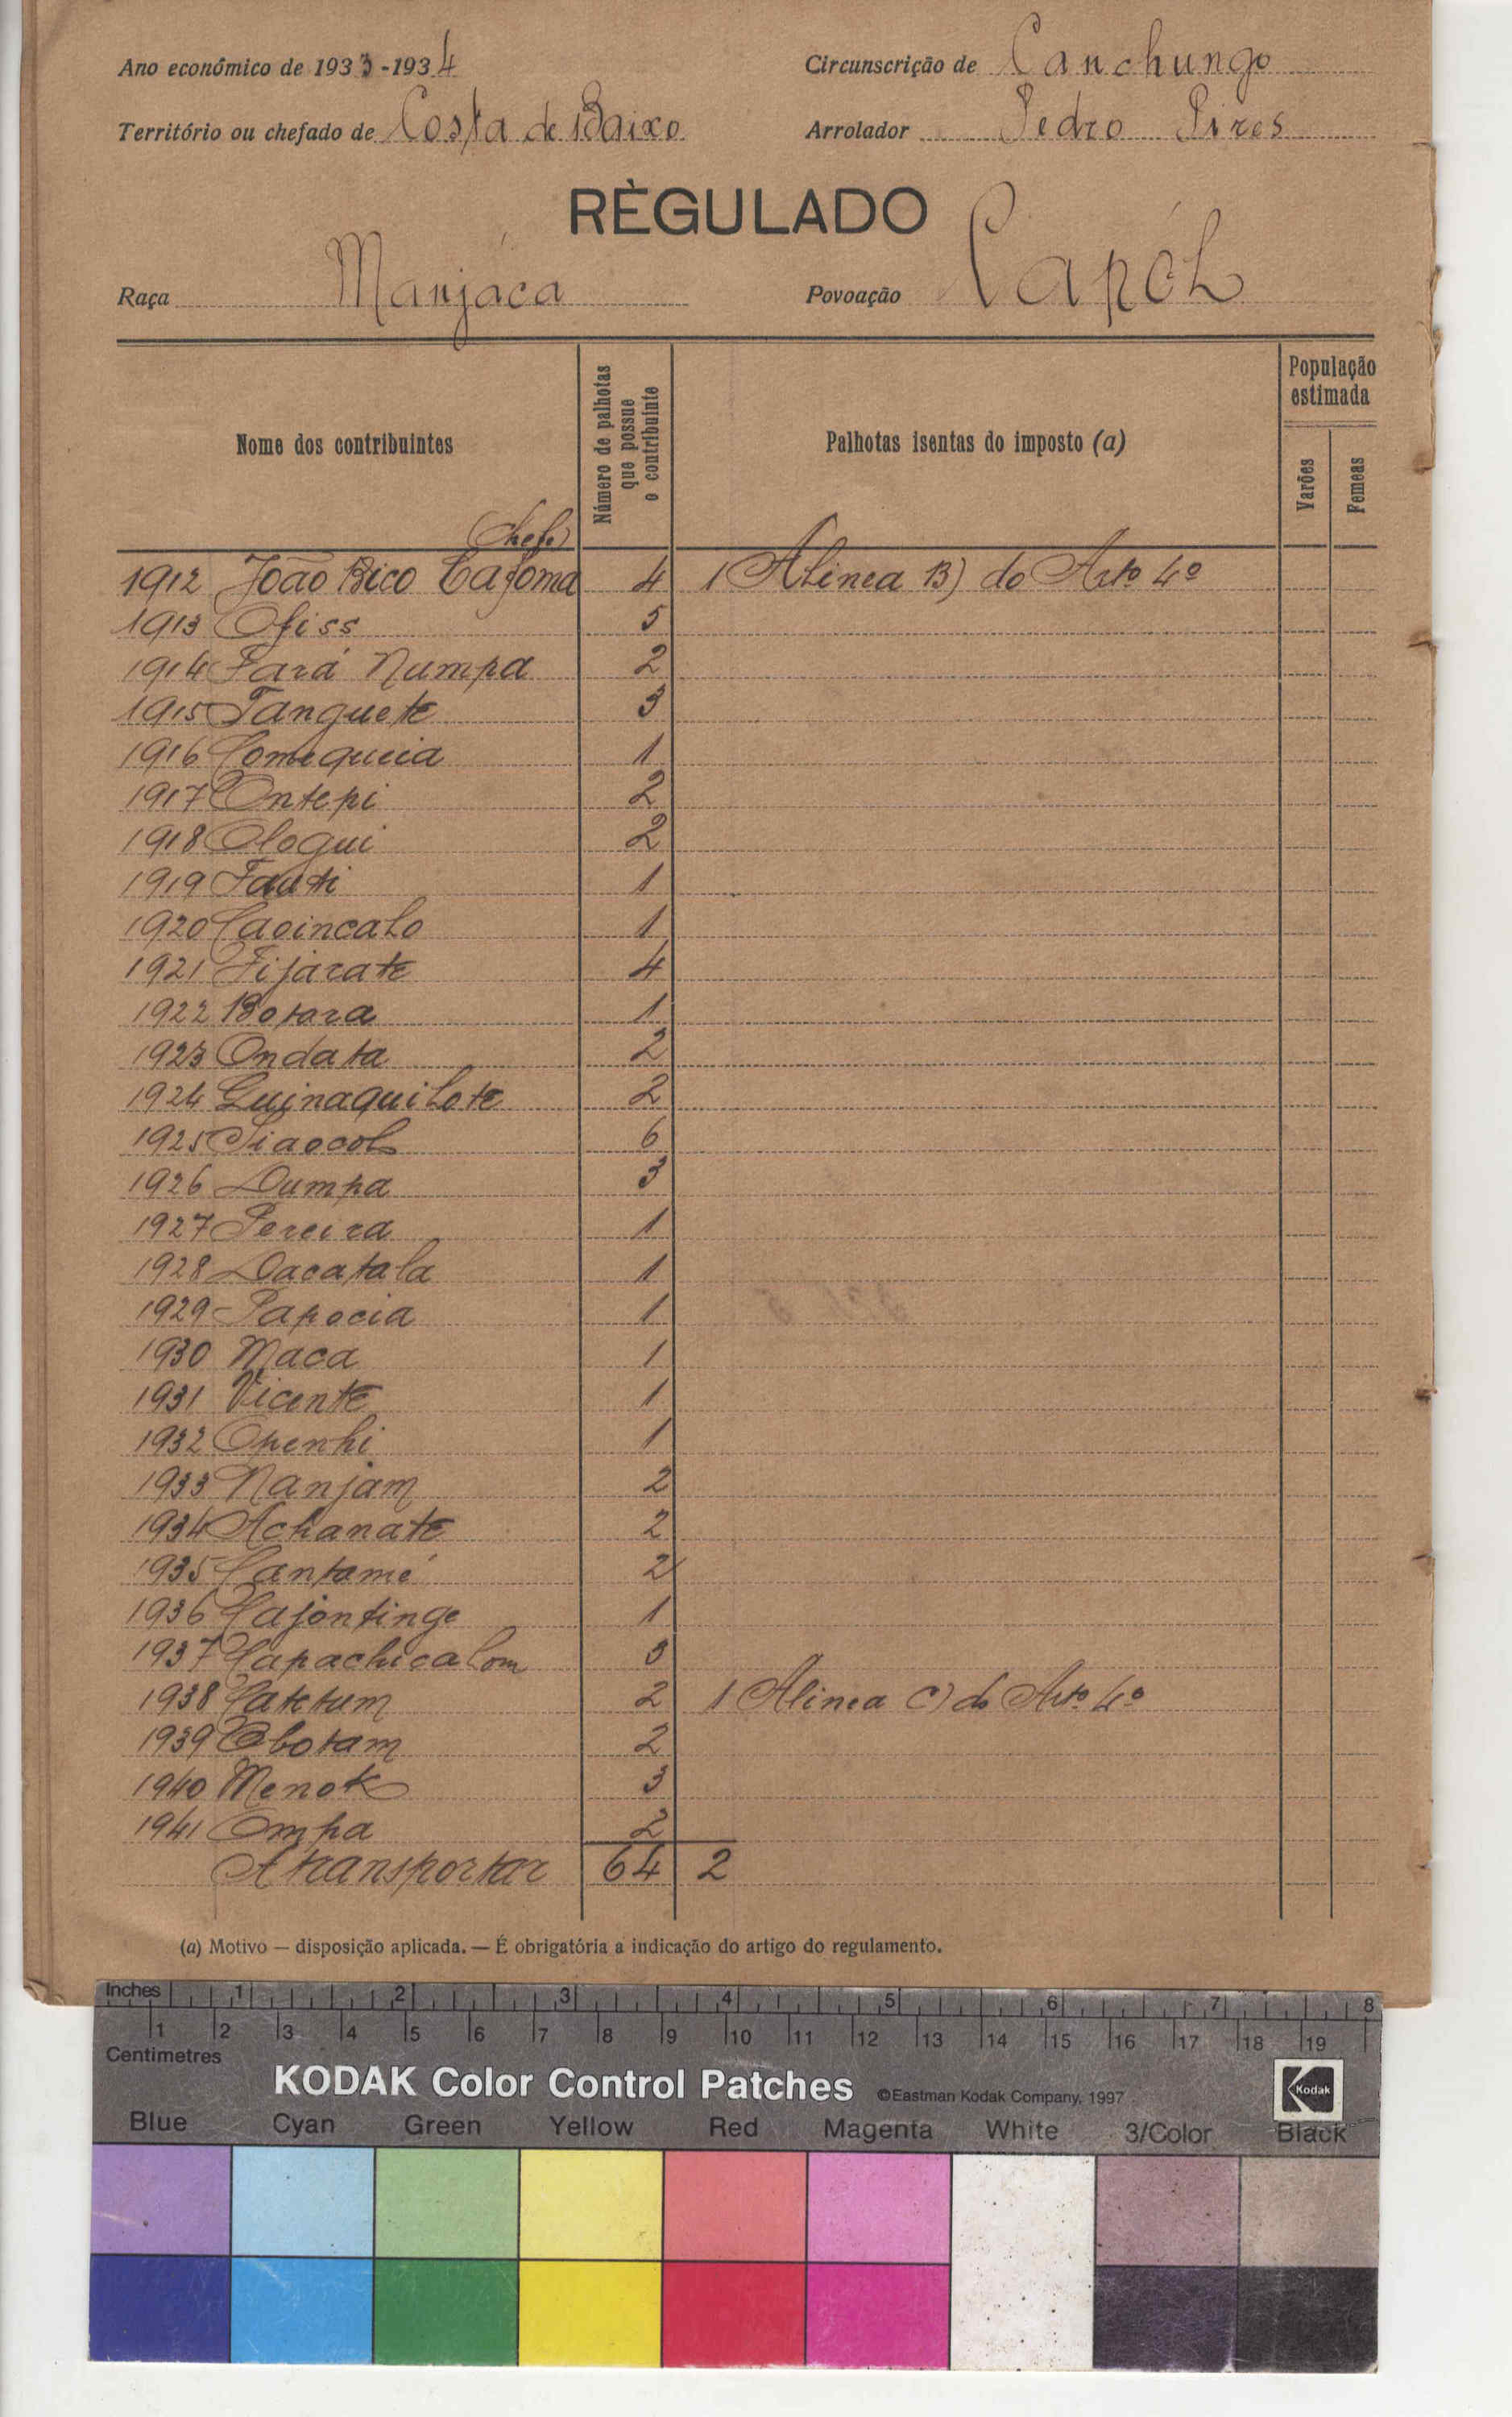 Ano económico de 1933-1934
Circunscrição de Canchungo
Território ou chefado de Costa de Baixo
Arrolador Pedro Pires
RÈGULADO
Raça Manjáca
Povoação Capól
Nome dos contribuintes
Número de palhotas que possue o contribuinte
Palhotas isentas do imposto (a)
População estimada
Varões
Femeas
(chefe)
1912 João Bico Cafoma 4 1 Alinea B) do Artº 4º
1913 Ofiss 5
1914 Fará Numpa 2
1915 Tanguete 3
1916 Comequeia 1
1917 Ontepi 2
1918 Ologui 2
1919 Fauti 1
1920 Caoincalo 1
1921 Fijarate 4
1922 Botara 1
1923 Ondata 2
1924 Guinaquilote 2
1925 Siaocol 6
1926 Dumpa 3
1927 Pereira 1
1928 Dacatala 1
1929 Papocia 1
1930 Maca 1
1931 Vicente 1
1932 Openhi 1
1933 Nanjam 2
1934 Achanate 2
1935 Cantamé 2
1936 Cajontinge 1
1937 Capachicalom 3
1938 Catetum 2 1 Alinea C) do Artº 4º
1939 Obotam 2
1940 Menok 3
1941 Ompa 2
A transportar 64 2
(a) Motivo — disposição aplicada. — É obrigatória a indicação do artigo do regulamento.
Inches 1 2 3 4 5 6 7 8
1 2 3 4 5 6 7 8 9 10 11 12 13 14 15 16 17 18 19
Centimetres
KODAK Color Control Patches ©Eastman Kodak Company, 1997 Kodak
Blue Cyan Green Yellow Red Magenta White 3/Color Black